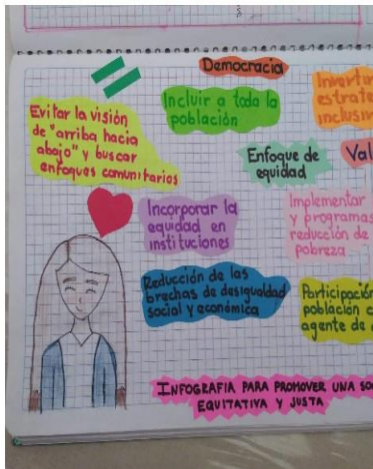 Democracia
Incluir a toda la
población
Evitar la visión
de "arriba hacia
abajo" y buscar
enfoques comunitarios
Enfoque de
equidad
Incorporar la
equidad en
instituciones
Implementar
y programas
reducción de
pobreza
Reducción de las
brechas de desigualdad
social y económica
Participación
población
agente de
INFOGRAFIA PARA PROMOVER UNA
EQUITATIVA Y JUSTA